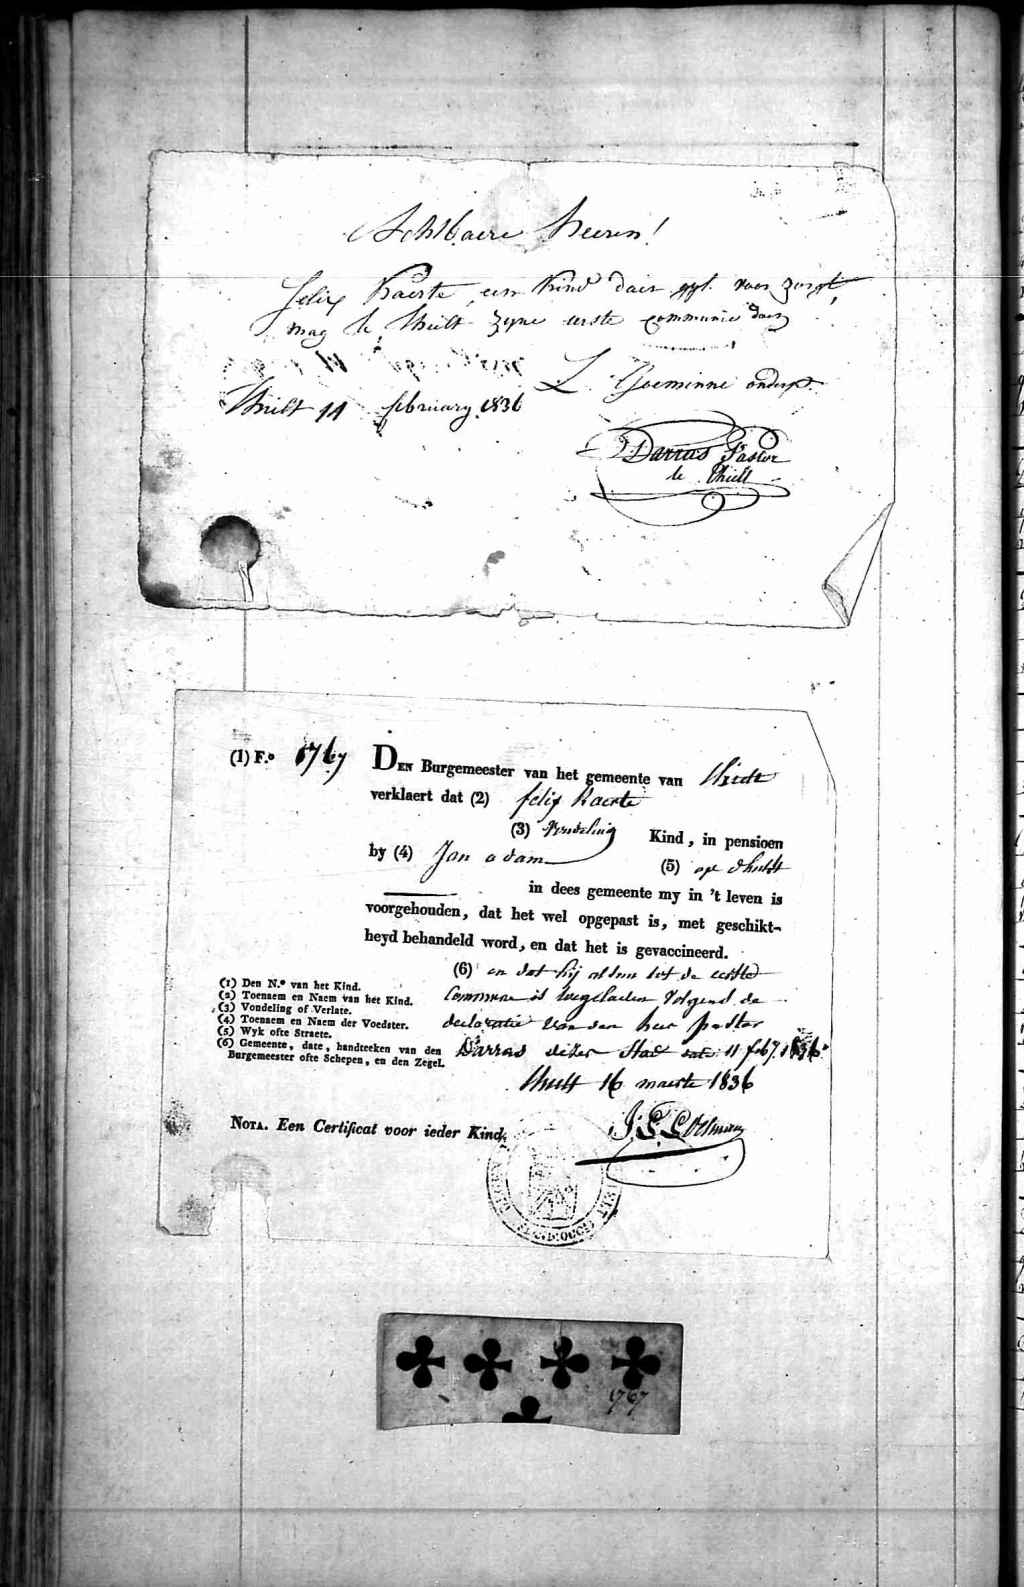 Achtbaere heeren!
felix Kaerte een kind daer gyl. voor zorgt,
mag te Thielt zyne eerste communie doen
L Goeminne onderpr.
Thielt 11 february 1836
Darras Pastor
te Thielt
(1) F.º 1767 DEN Burgemeester van het gemeente van Thielt
verklaert dat (2) felix Kaerte
(3) Vondeling Kind, in pensioen
by (4) Jan adam (5) op
in dees gemeente my in 't leven is
voorgehouden, dat het wel opgepast is, met geschikt-
heyd behandeld word, en dat het is gevaccineerd.
(6) en dat hij alhier tot de eerste
Commune is toegelaeten volgens de
declaratie van den heer pastor
Darras dezer Stad 11 feb. 1836.
Thielt 16 maerte 1836
(1) Den N.º van het Kind.
(2) Toenaem en Naem van het Kind.
(3) Vondeling of Verlate.
(4) Toenaem en Naem der Voedster.
(5) Wyk ofte Straete.
(6) Gemeente, date, handteeken van den
Burgemeester ofte Schepen, en den Zegel.
NOTA. Een Certificat voor ieder Kind.
1767